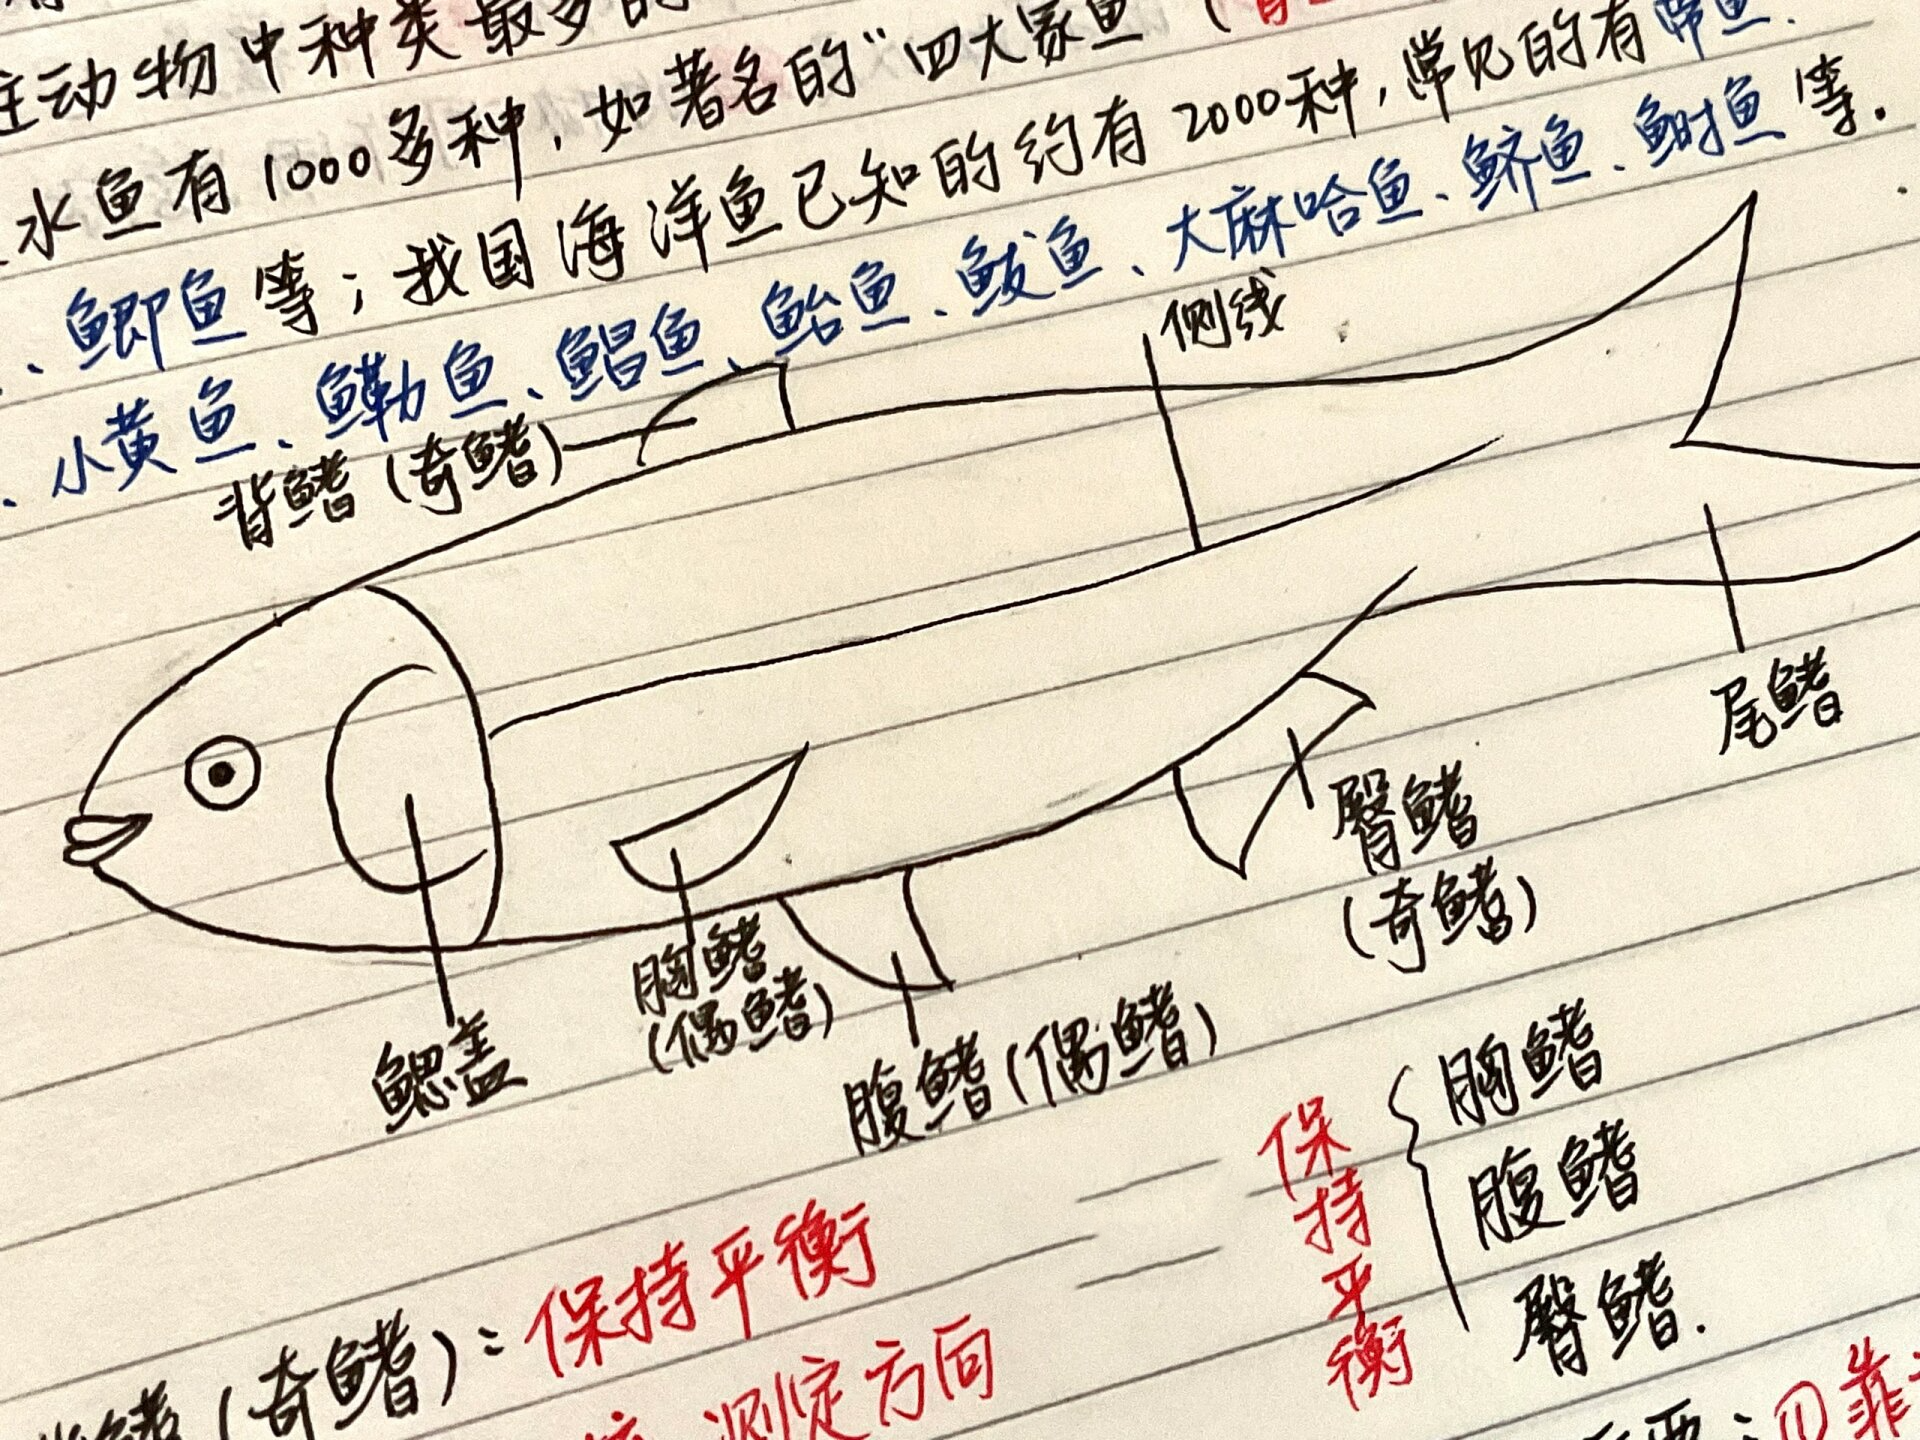 动物中种类最多的
水鱼有1000多种，如著名的“四大家鱼（
、鲫鱼等；我国海洋鱼已知的约有2000种，常见的有带鱼、
、小黄鱼、鳓鱼、鲳鱼、鲐鱼、鲅鱼、大麻哈鱼、鲚鱼、鲥鱼等.
侧线
背鳍（奇鳍）
尾鳍
臀鳍
（奇鳍）
胸鳍
（偶鳍）
腹鳍（偶鳍）
鳃盖
保持平衡
胸鳍
腹鳍
臀鳍.
鳍（奇鳍）：保持平衡
测定方向
要：①靠